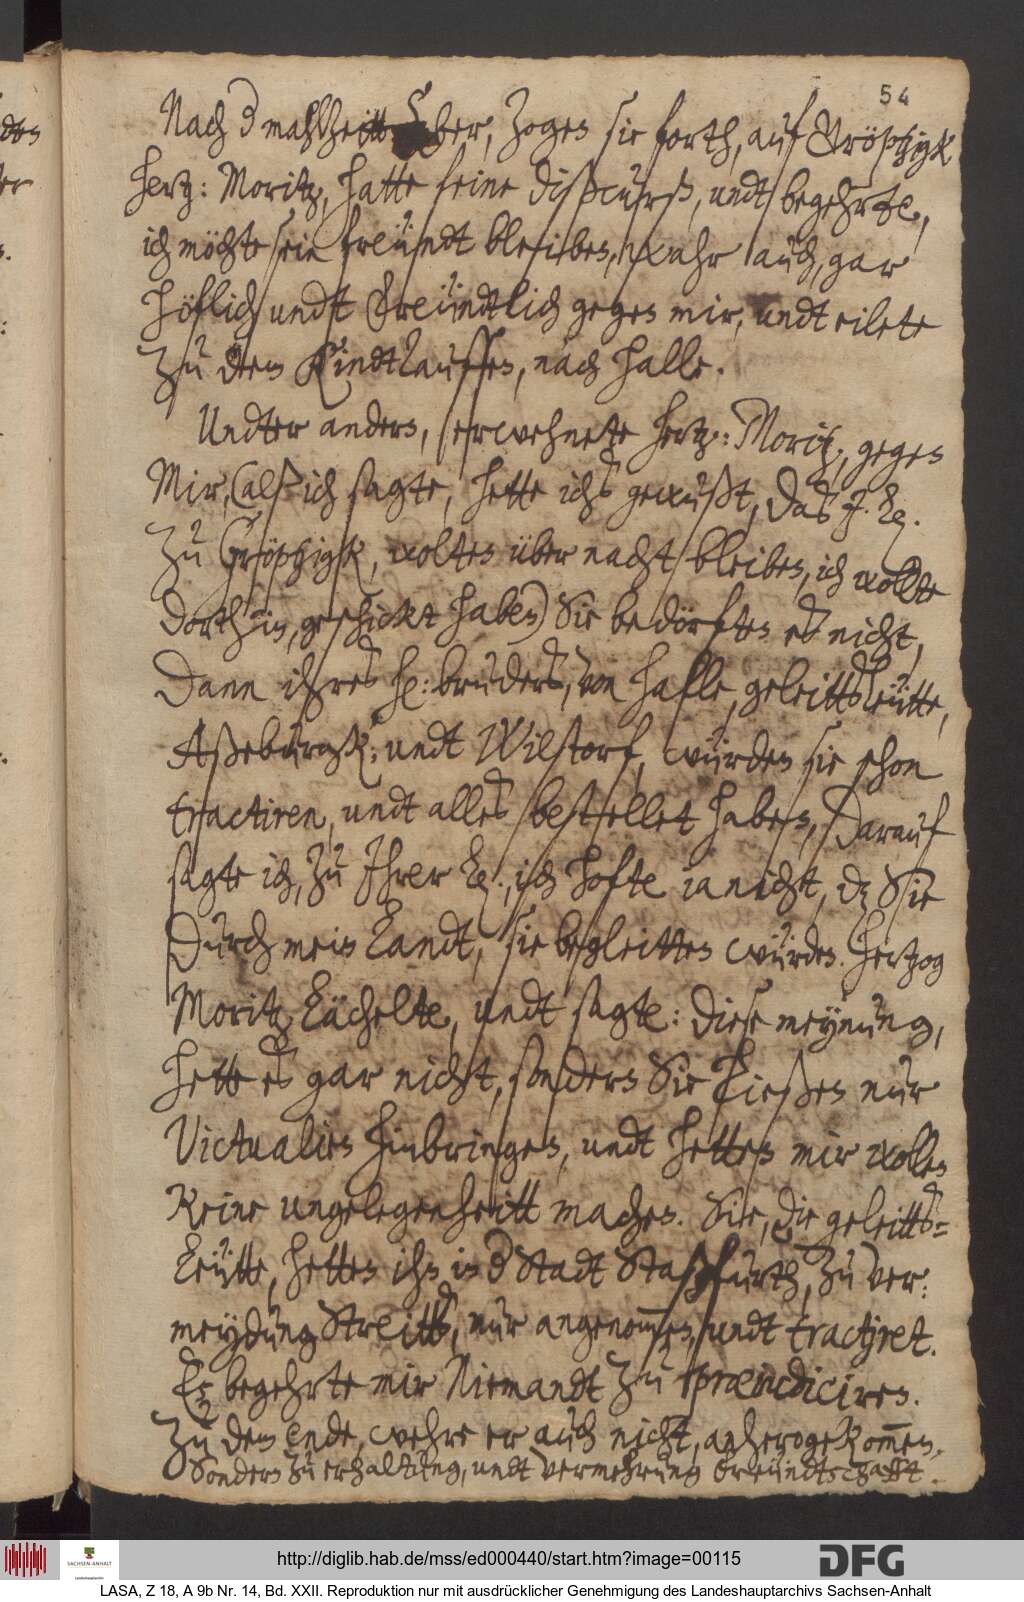 54
Nach d mahlzeitt aber, zogen sie forth, auf Gröptzigk
Hertz: Moritz, hatte seine dißcurß, undt begehrte,
ich möchte sein freündt bleiben, wahr auch, gar
höflich undt freündtlich gegen mir, undt eilete
zu dem Kindtauffen, nach Halle.
Undter anderm, erwehnete Hertz: Moritz, gegen
Mir, (alß ich sagte, hette ichs gewußt, das J. L.
zu Gröptzigk, wolten über nacht bleiben, ich wollte
dorthin, geschickt haben) Sie bedörften es nicht,
Dann ihres H: bruders, von Halle, geleittsleütte,
Aßeburgk: undt Wilstorf, würden sie schon
tractiren, undt alles bestellet haben, Darauf
sagte ich, zu Ihrer L:, ich hofte ia nicht, dz Sie
durch mein Landt, sie begleitten würden. Hertzog
Moritz Lächelte, undt sagte: diese meynung,
hette es gar nicht, sondern Sie ließen nur
Victualien hinbringen, undt hetten mir wollen
Keine ungelegenheitt machen. Sie, die geleitts=
Leütte, hetten ihn in d Stadt Staßfurth, zu ver:
meydung Streitts, nur angenom̅en, undt tractiret.
Er begehrte mir Niemandt zu præiudiciren.
Zu dem ende, wehre er auch nicht, anherogekom̅en,
Sondern zu erhalttung, undt vermehrung freündtschafft.
http://diglib.hab.de/mss/ed000440/start.htm?image=00115
SACHSEN-ANHALT
DFG
LASA, Z 18, A 9b Nr. 14, Bd. XXII. Reproduktion nur mit ausdrücklicher Genehmigung des Landeshauptarchivs Sachsen-Anhalt